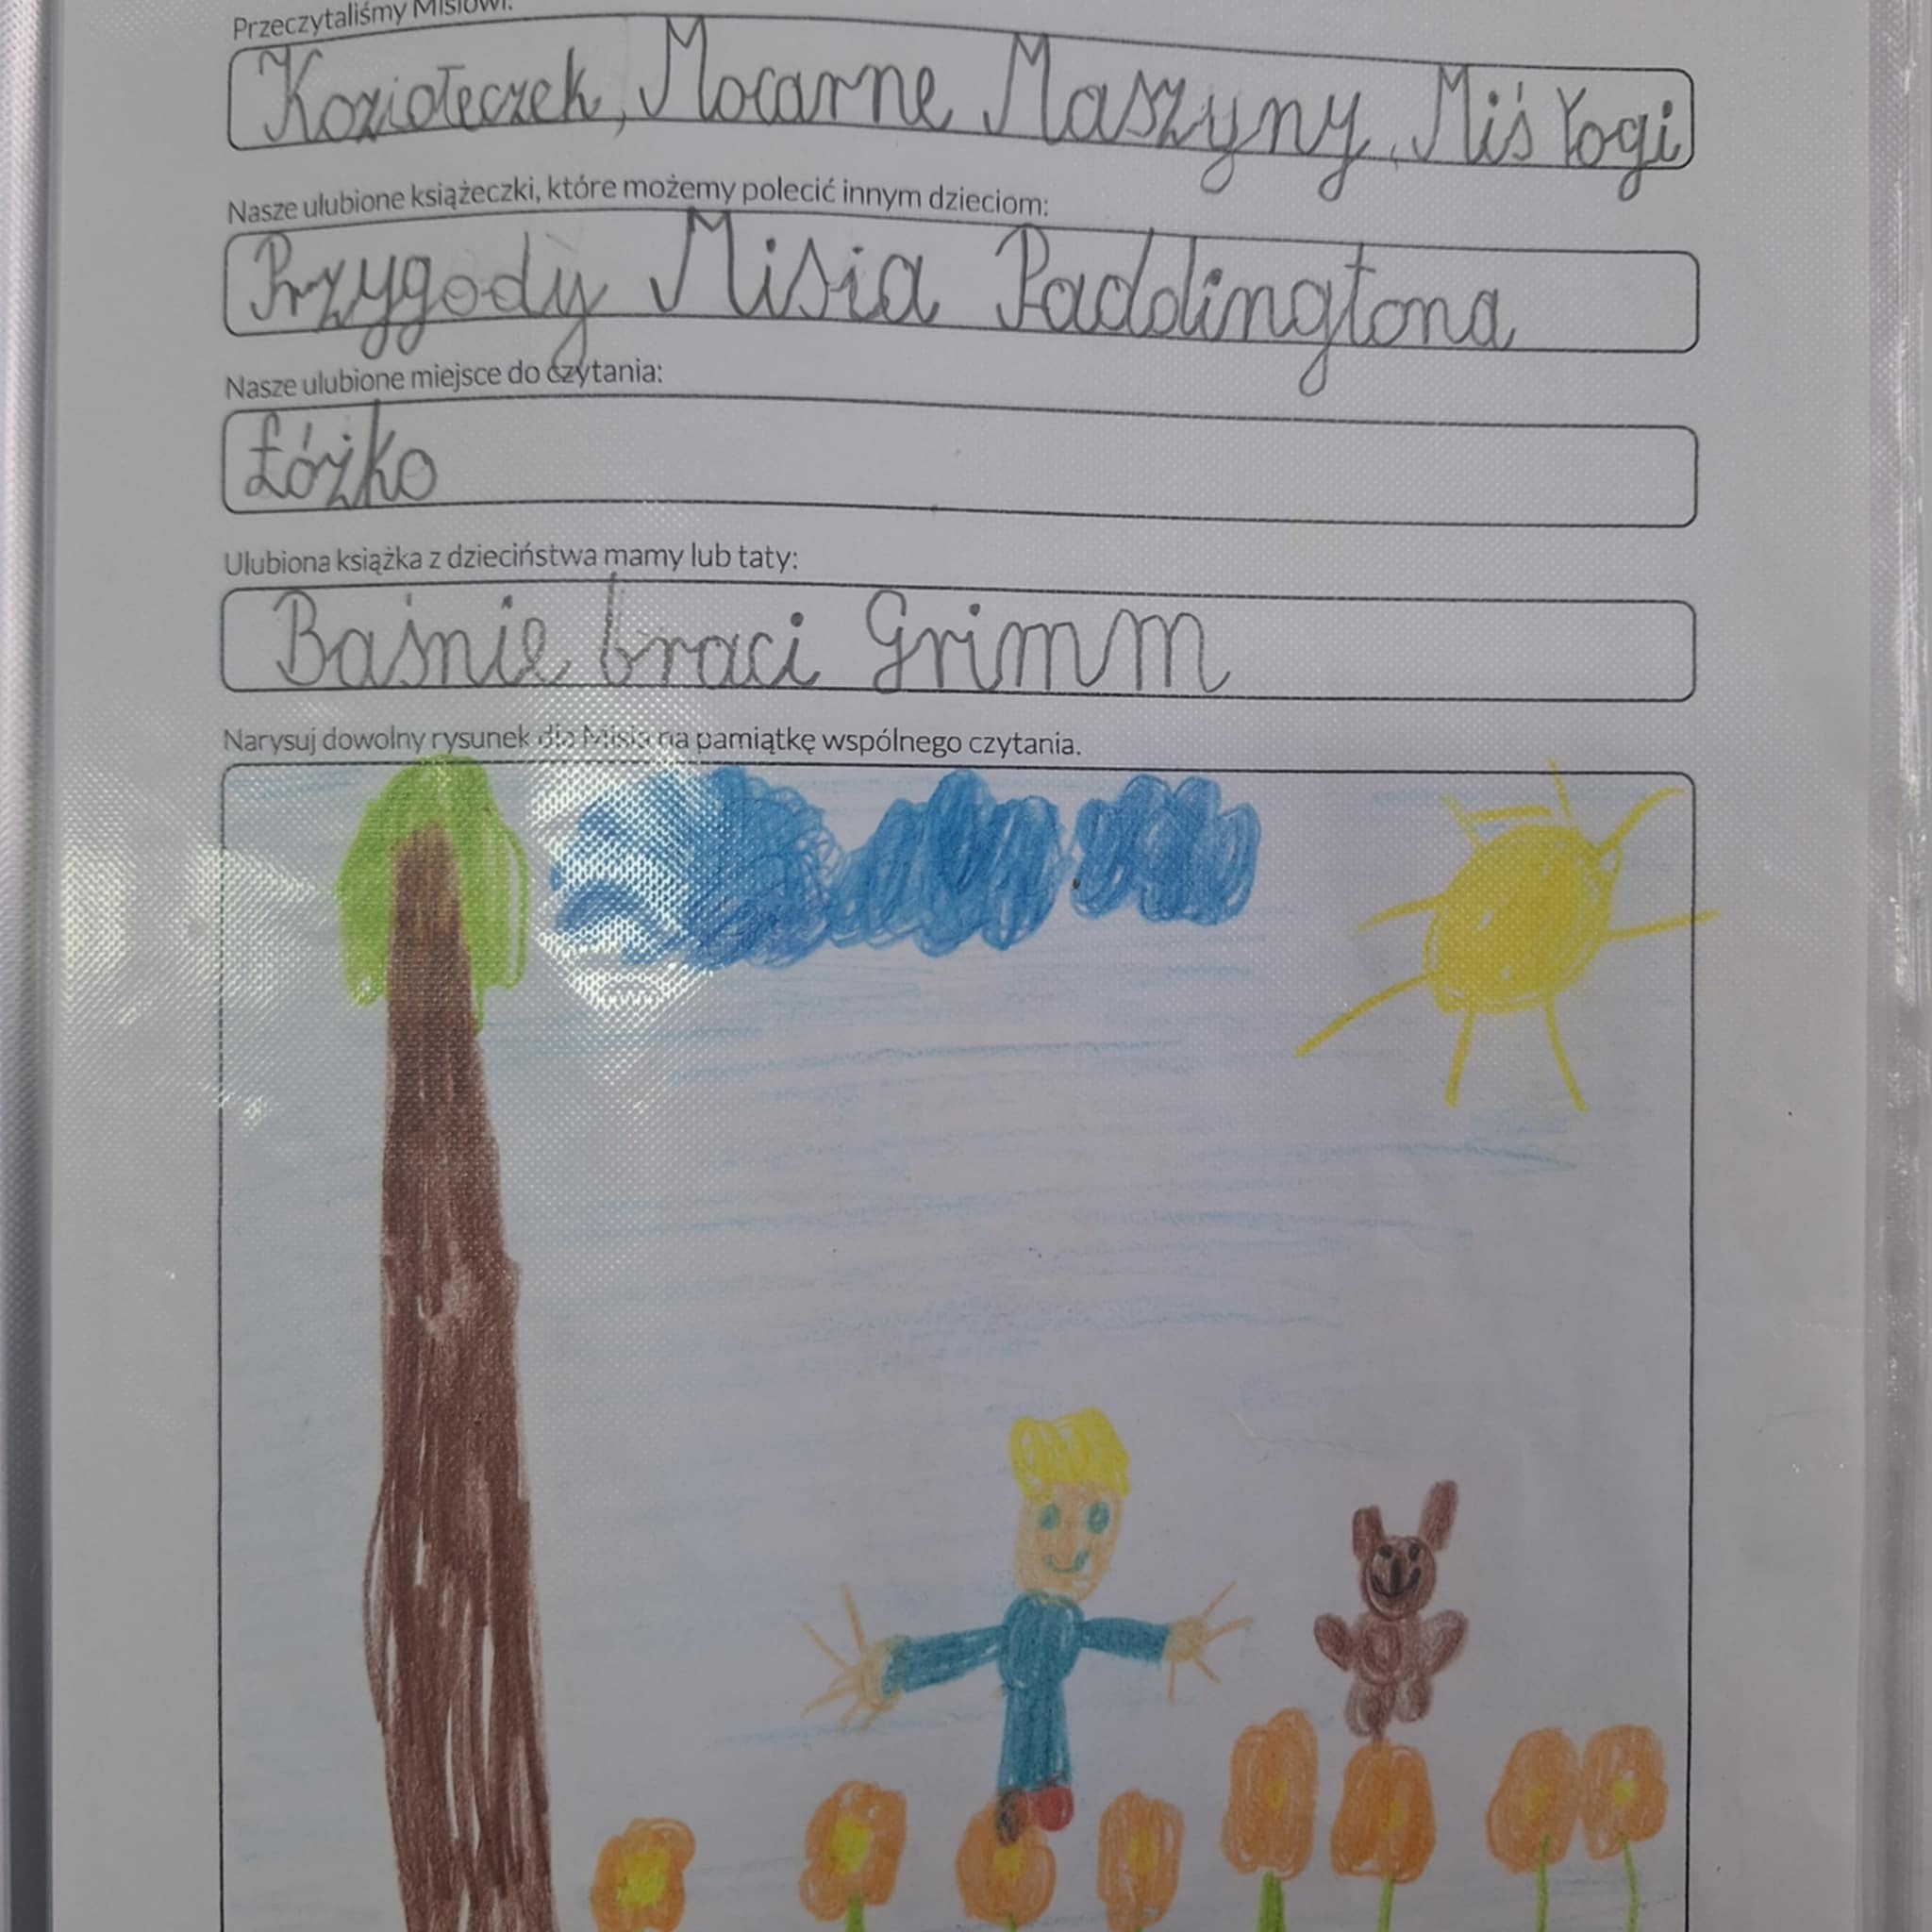 Przeczytaliśmy Misiowi:
Koziołeczek, Mocarne Maszyny, Miś Yogi
Nasze ulubione książeczki, które możemy polecić innym dzieciom:
Przygody Misia Paddingtona
Nasze ulubione miejsce do czytania:
Łóżko
Ulubiona książka z dzieciństwa mamy lub taty:
Baśnie braci Grimm
Narysuj dowolny rysunek dla Misia na pamiątkę wspólnego czytania.